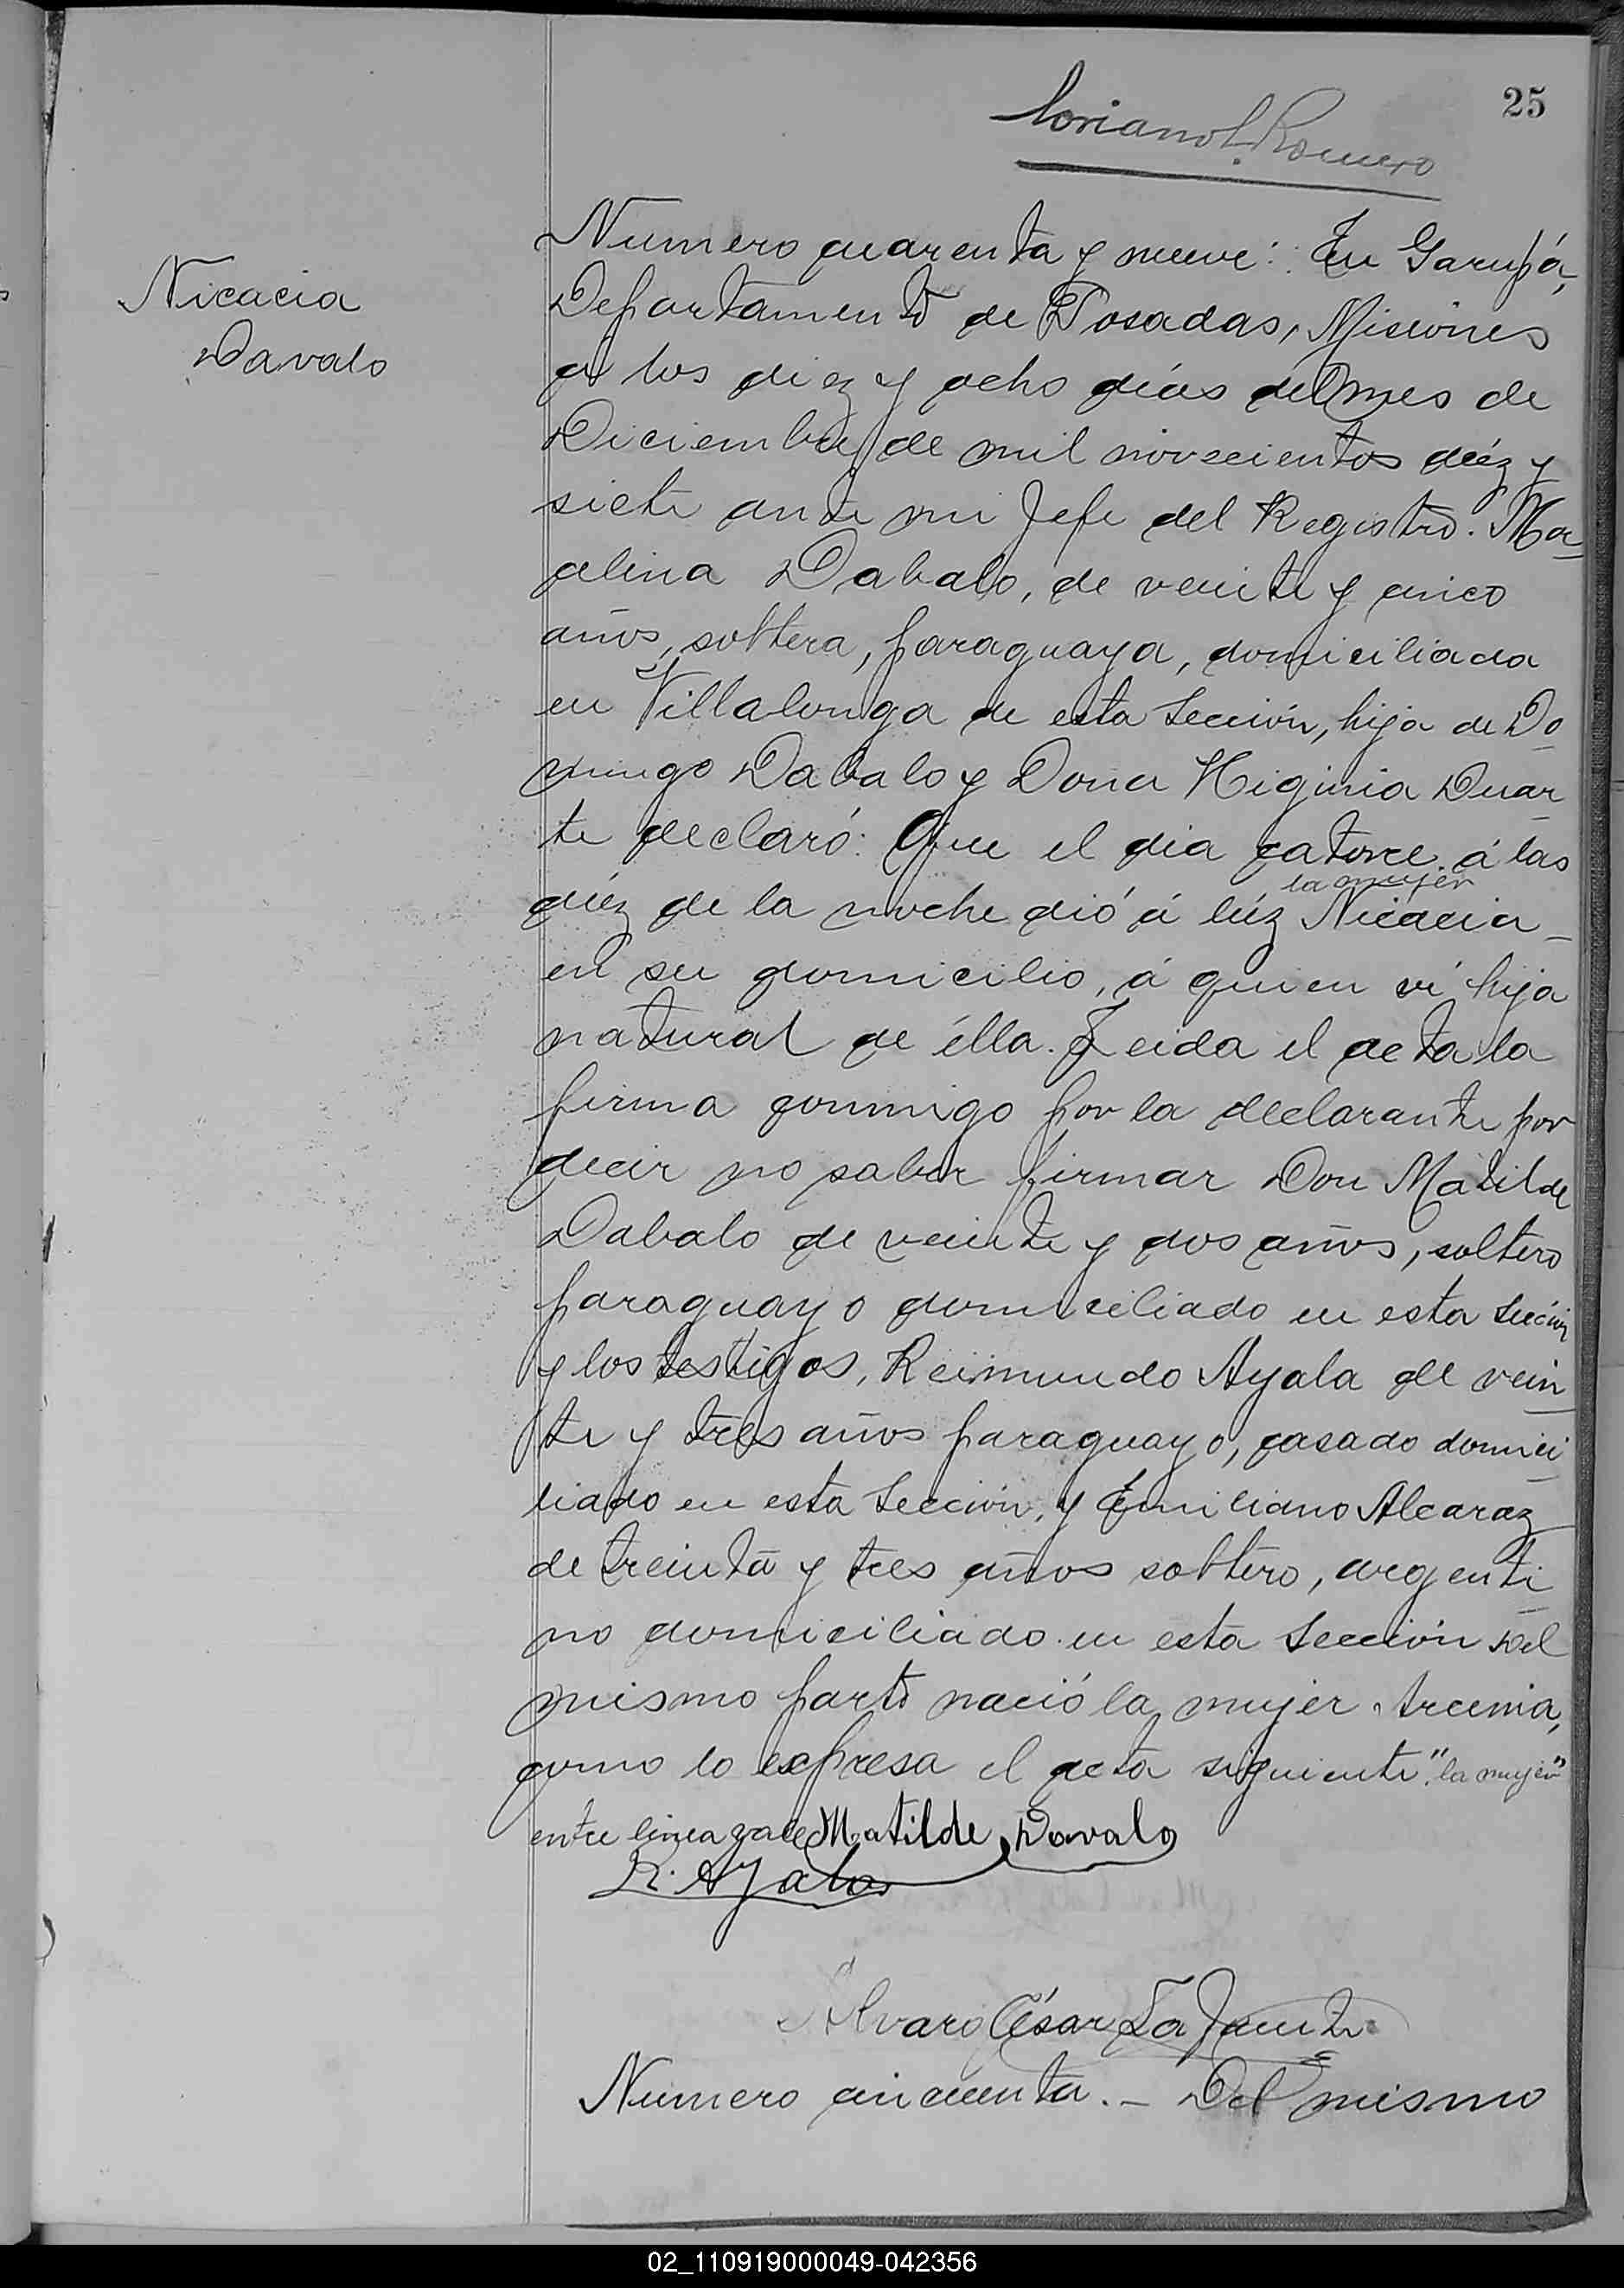 25
Soriano L. Romero
Nicacia
Davalo
Numero cuarenta y nueve: En Garupá,
Departamento de Posadas, Misiones
á los diez y ocho días del mes de
Diciembre de mil novecientos diéz y
siete ante mi Jefe del Registro. Ma-
alina Dabalo, de veinte y cinco
años, soltera, paraguaya, domiciliada
en Villalonga de esta Sección, hija de Do-
mingo Dabalo y Dona Higinia Duar-
te declaró: Que el dia catorce á las
la mujer
diéz de la noche dió á lúz Nicácia-
en su domicilio, á quien ví hija
natural de élla. Leida el acta la
firma conmigo por la declarante por
decir no saber firmar Don Matilde
Dabalo de veinte y dos años, soltero
paraguayo domiciliado en esta Sección
y los testigos, Reimundo Ayala de vein-
te y tres años paraguayo, casado domici-
liado en esta Sección, y Emiliano Alcaraz
de treinta y tres años soltero, argenti-
no domiciliado en esta Sección Del
mismo parto nació la mujer Arcenia,
como lo expresa el acta siguiente "la mujer"
entre linea vale Matilde Davalo
R. Ayala
Alvaro César La Fuente
Numero cincuenta.- Del mismo
02_110919000049-042356